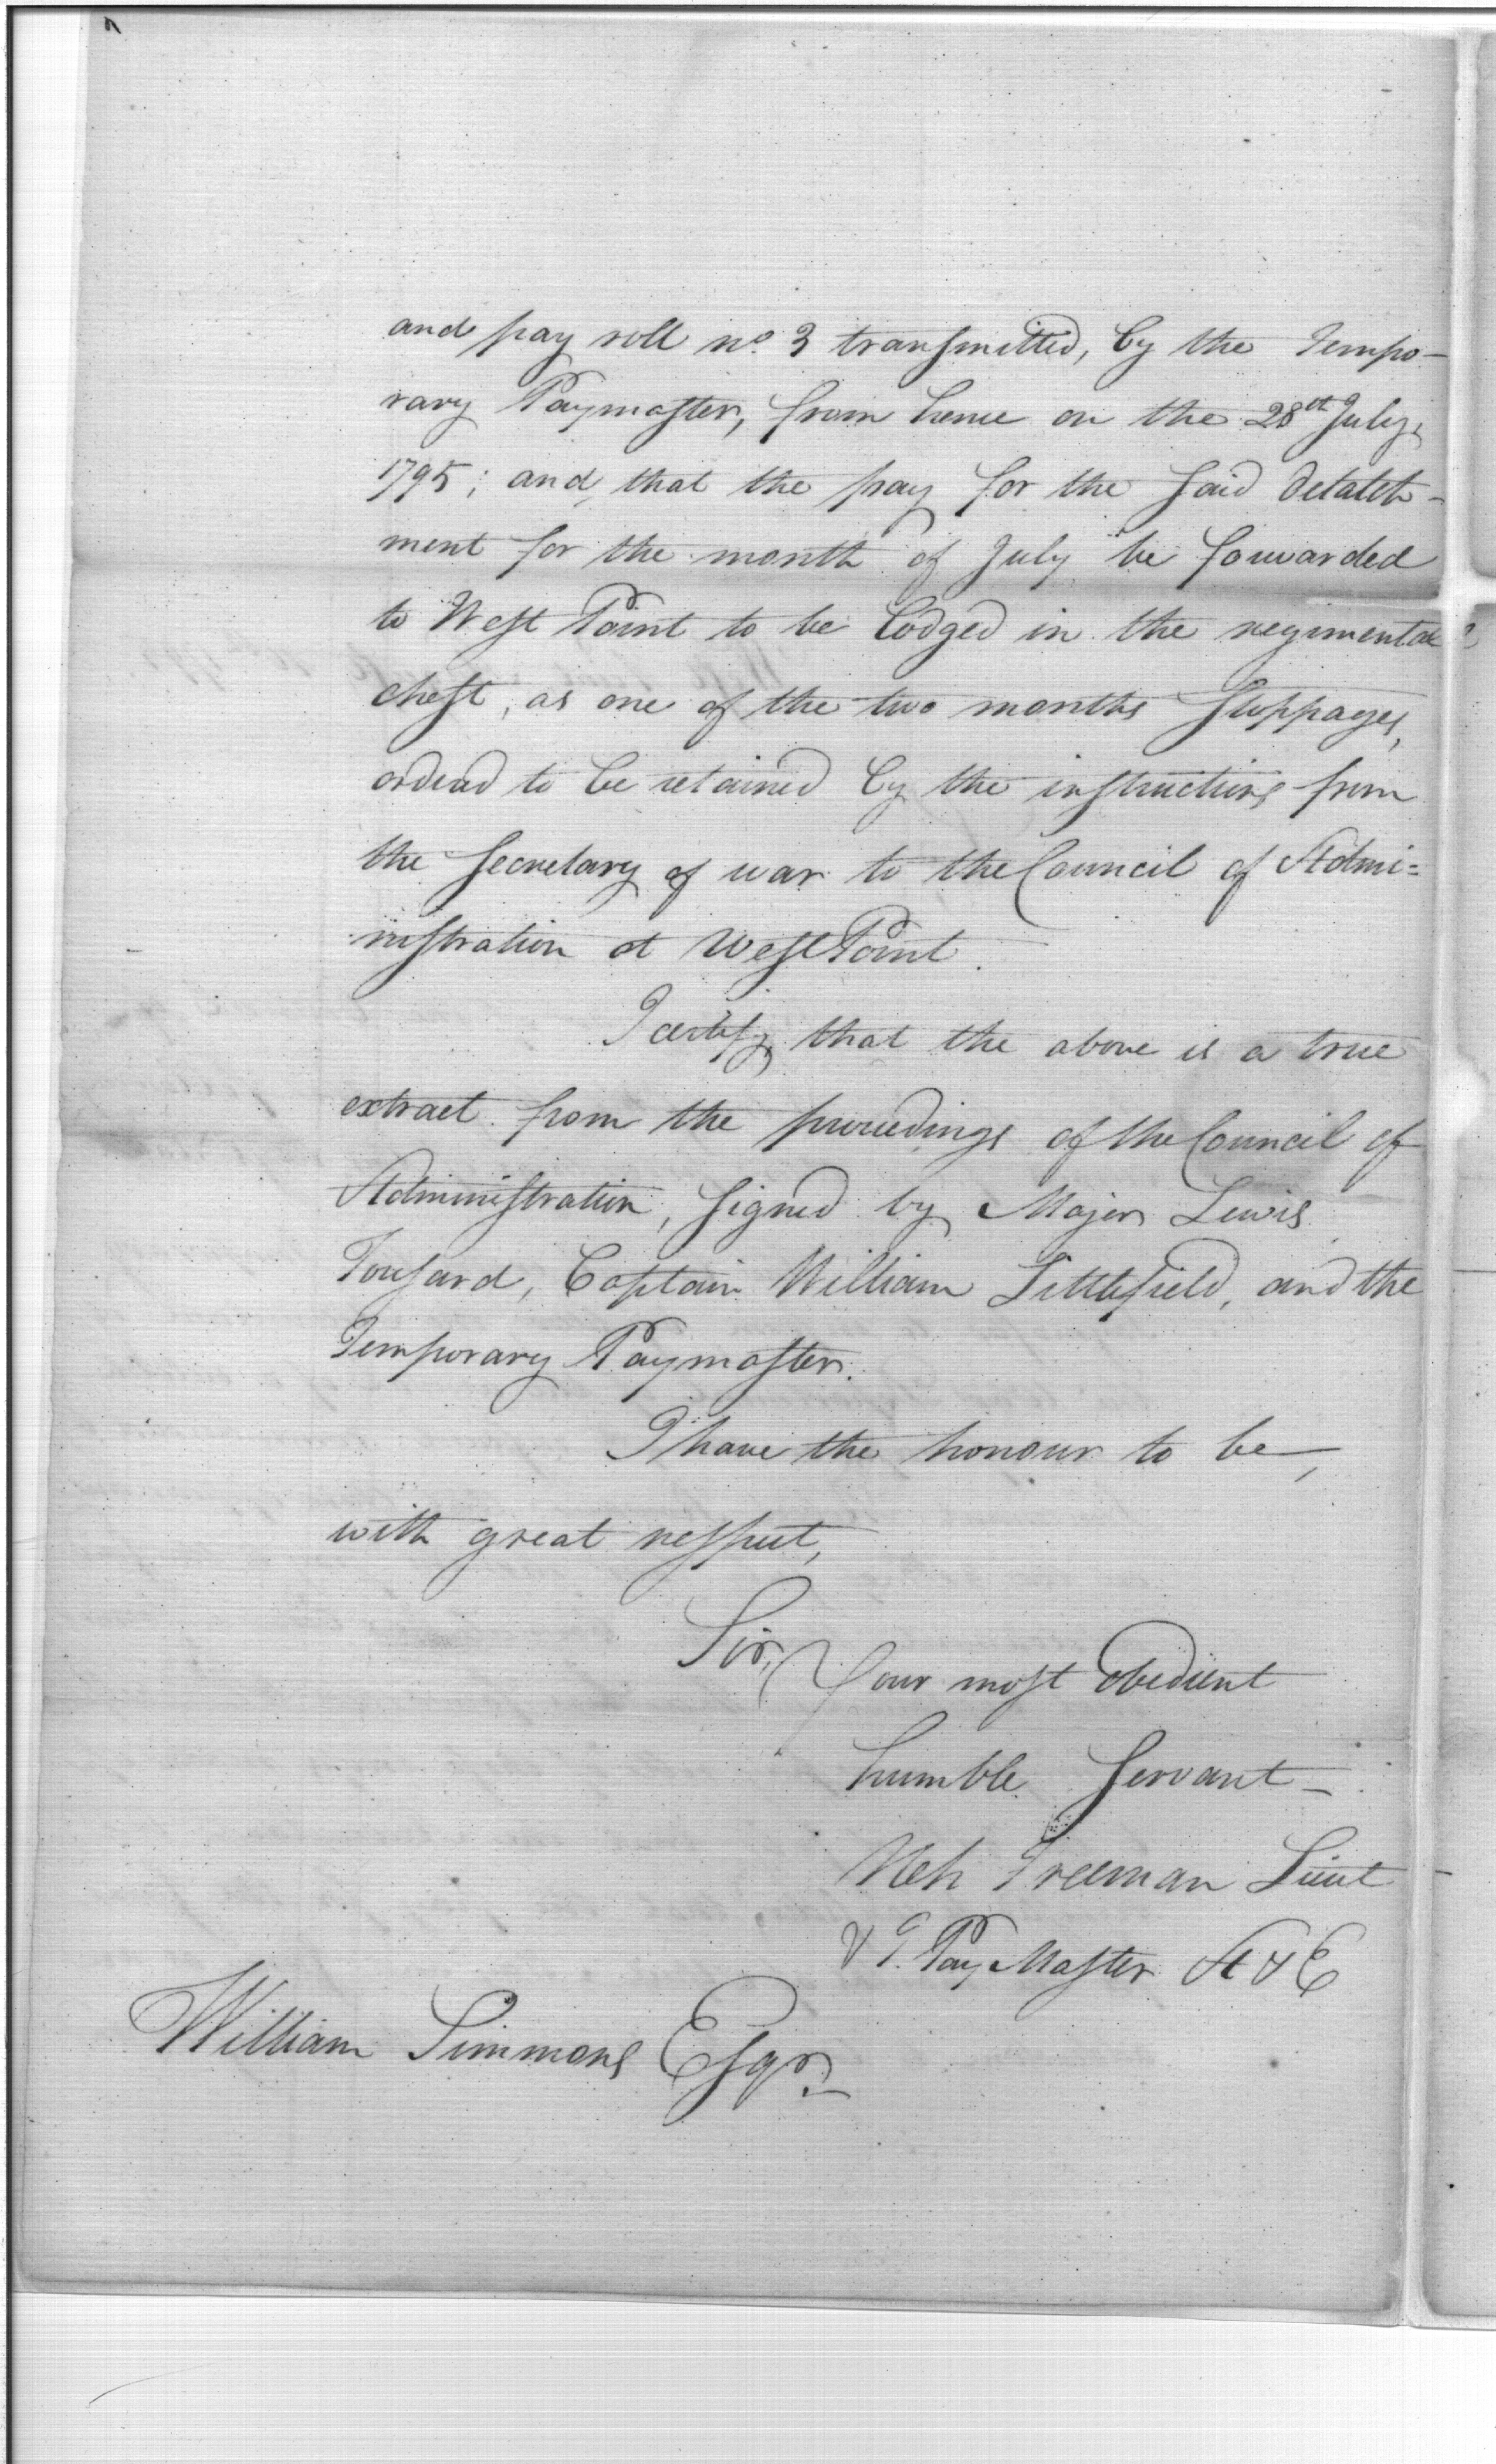 and pay roll no. 3 transmitted, by the Tempo-
rary Paymaster, from hence on the 28th July,
1795; and that the pay for the said detatch-
ment for the month of July be forwarded
to West Point to be lodged in the regimental
chest, as one of the two months stoppages,
ordered to be retained by the instructions from
the secretary of war to the Council of Admi=
nistration at West Point.
I certify that the above is a true
extract from the proceedings of the Council of
Administration, signed by Major Lewis
Tousard, Captain William Littlefield, and the
Temporary Paymaster.
I have the honour to be,
with great respect,
Sir,
Your most obedient
humble servant
Neh Freeman Lieut
& T. Pay Master A & E
William Simmons Esqr.